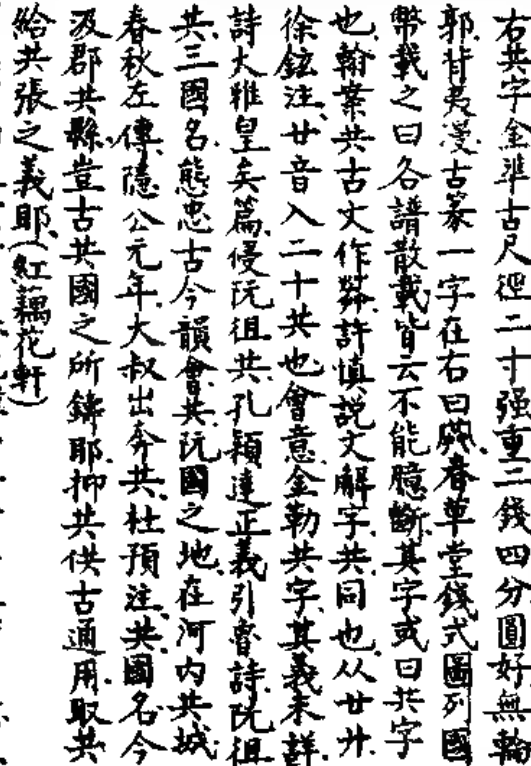 右共字金準古尺徑二寸强重三錢四分圓好無輪
郭背夷漫古篆一字在右曰共春草堂錢式圖列國
幣載之曰各譜散載皆云不能臆斷其字或曰共字
也翰案共古文作𦱹許慎説文解字共同也从廿廾
徐鉉注廿音入二十共也會意金勒共字其義未詳
詩大雅皇矣篇侵阮徂共孔穎達正義引魯詩阮徂
共三國名熊忠古今韻會共阮國之地在河内共城
春秋左傳隱公元年大叔出奔共杜預注共國名今
汲郡共縣豈古共國之所鑄耶抑共供古通用取共
給共張之義耶(紅藕花軒)